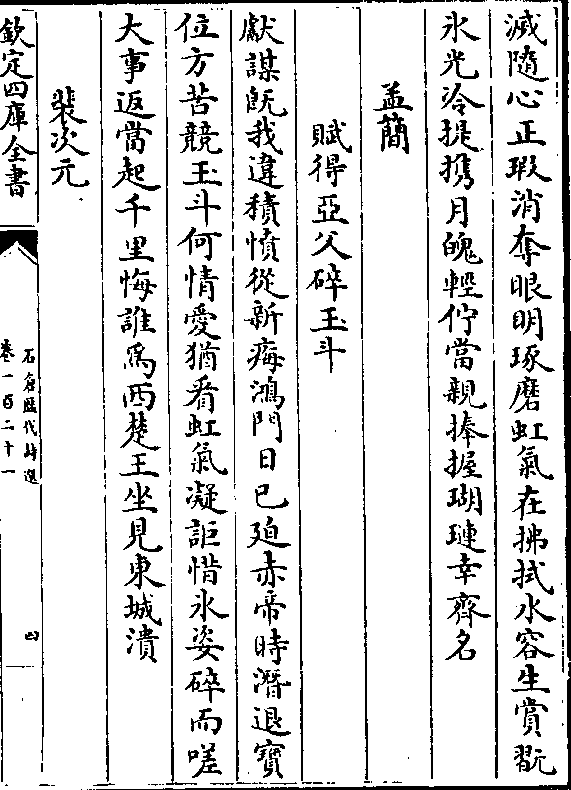 滅隨心正瑕消奪眼明琢磨虹氣在拂拭水容生賞翫
氷光冷提携月魄輕佇當親捧握瑚璉幸齊名
孟簡
賦得亞父碎玉斗
獻謀既我違積憤從新痗鴻門日已廹赤帝時潛退寳
位方苦競玉斗何情愛猶看虹氣凝詎惜氷姿碎而嗟
大事返當起千里悔誰為西楚王坐見東城潰
裴次元
欽定四庫全書
石倉歴代詩選
卷一百二十一
四